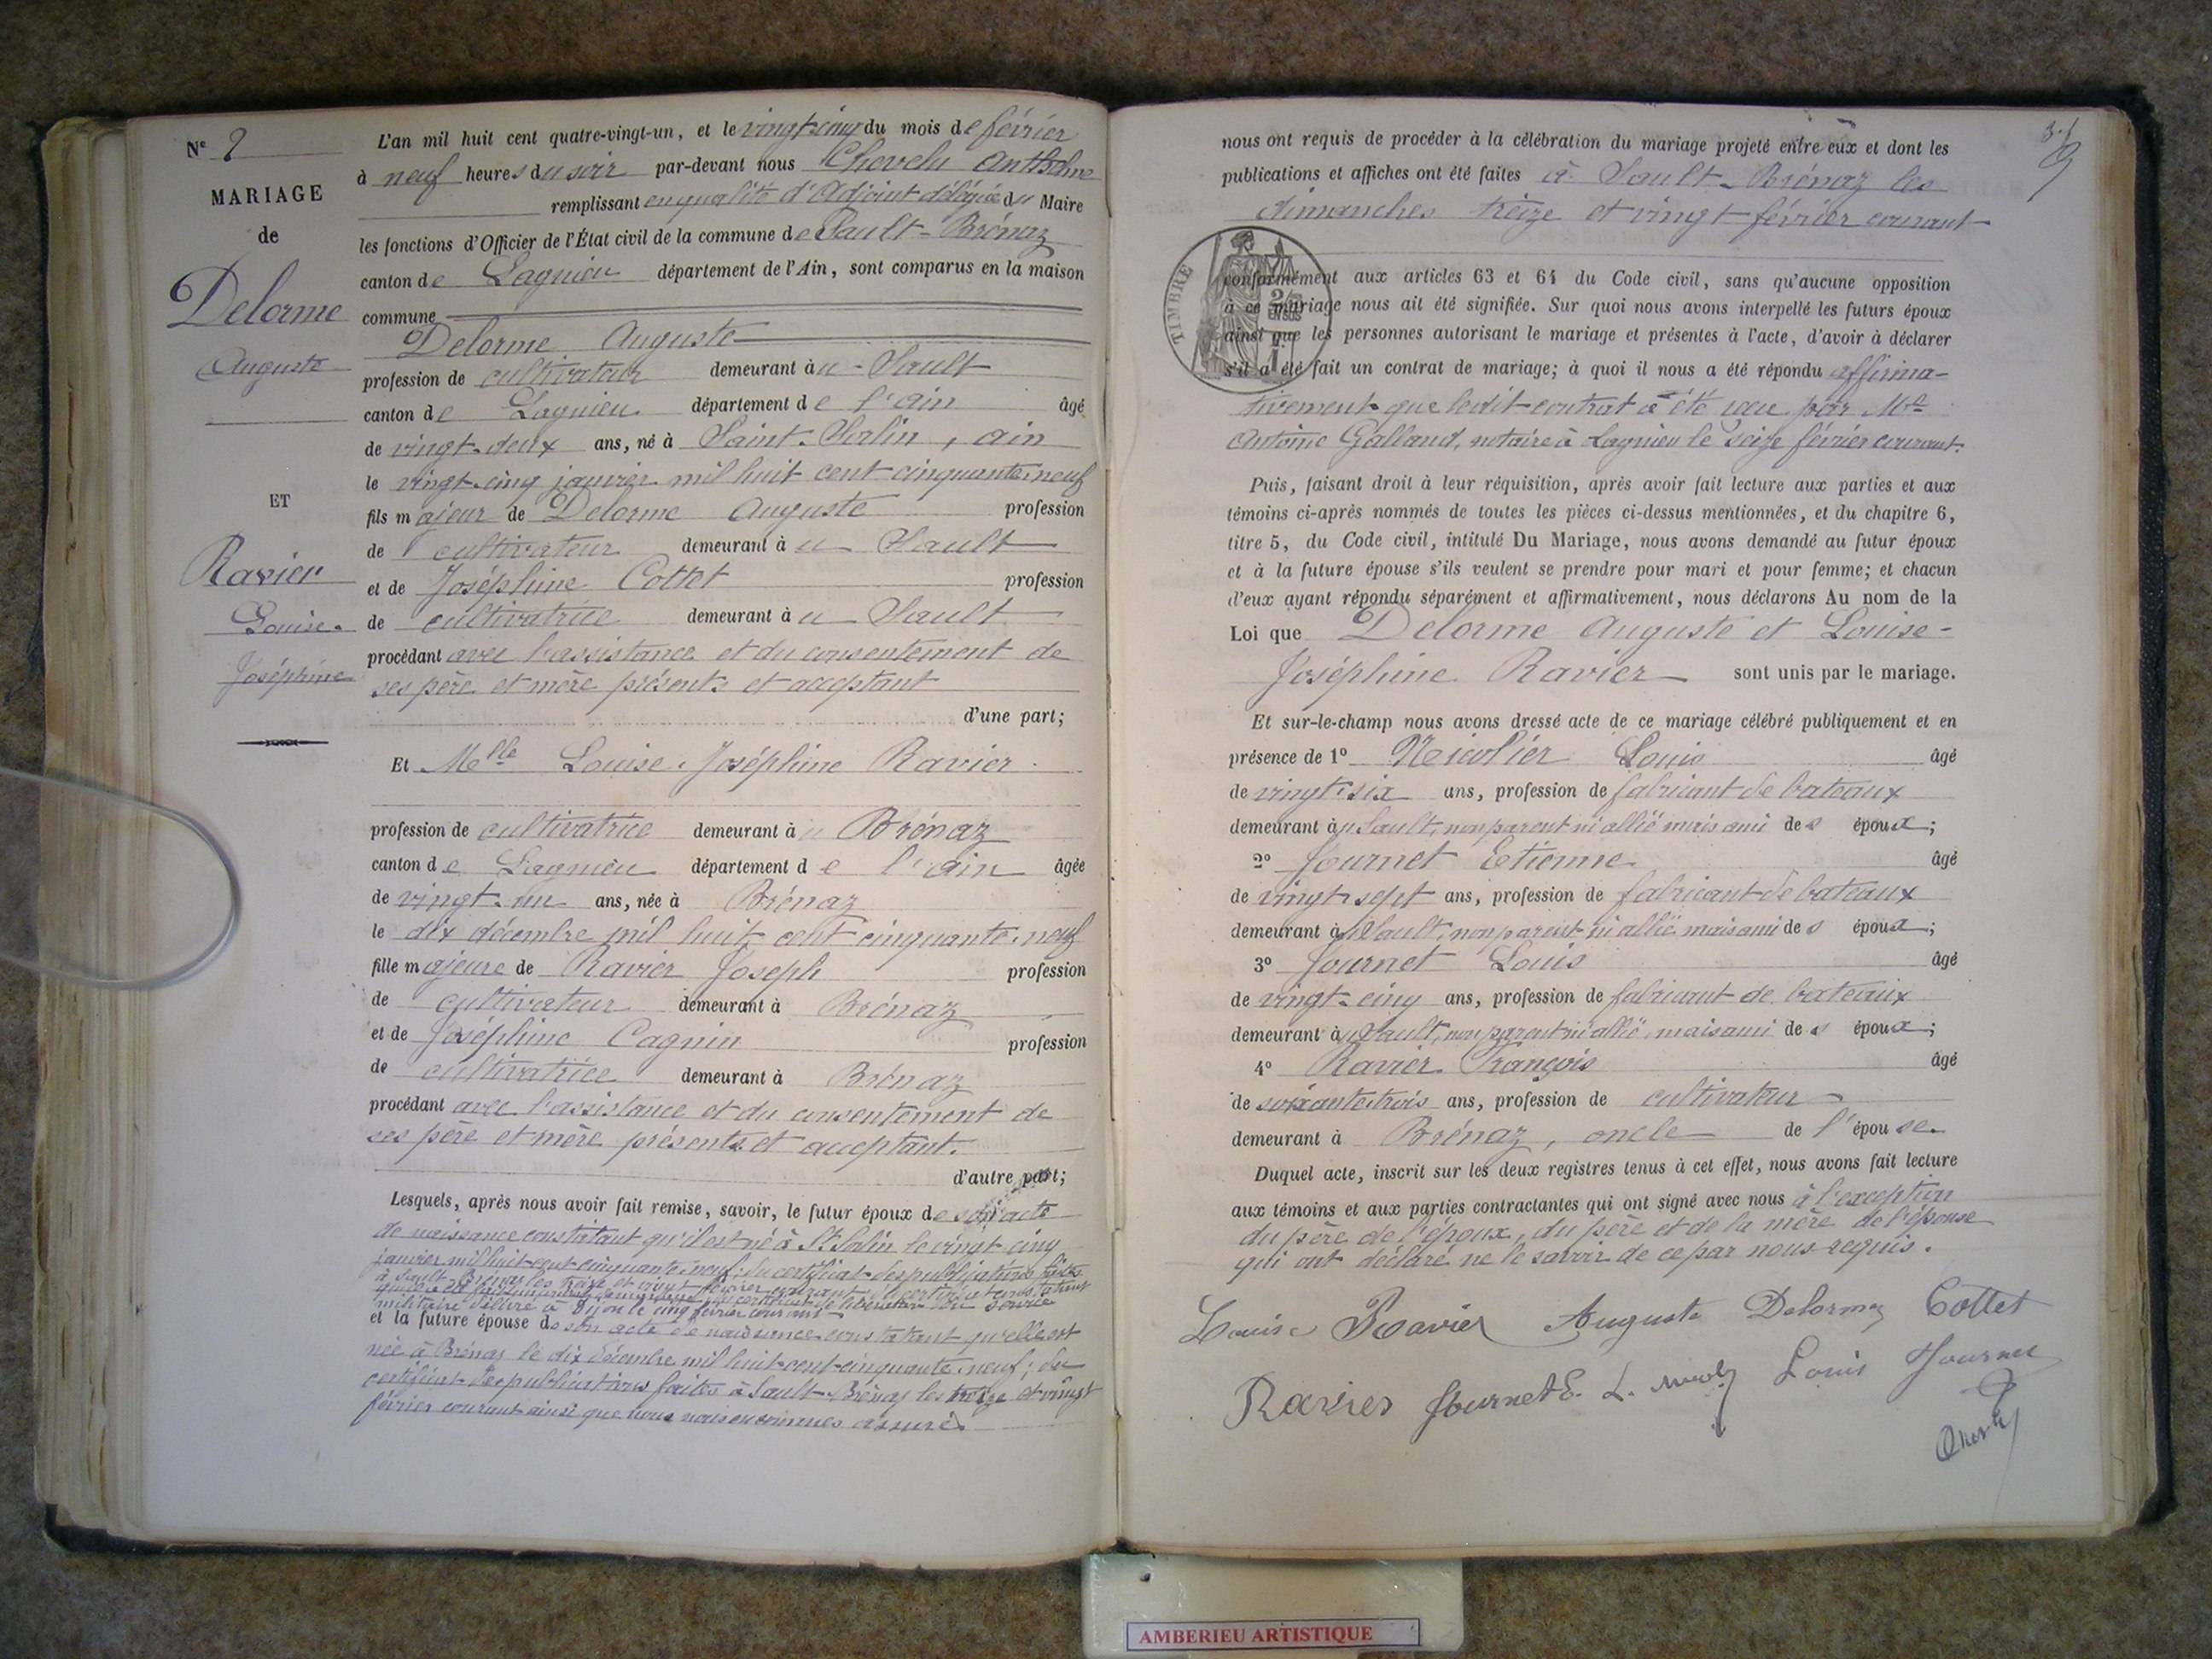 Nº 2
MARIAGE
de
Delorme
Auguste
ET
Ravier
Louise
Joséphine
L'an mil huit cent quatre-vingt-un, et le vingt cinq du mois de février
à neuf heures du soir par-devant nous Chevelu Anthelme
remplissant en qualité d'Adjoint délégué du Maire
les fonctions d'Officier de l'État civil de la commune de Sault-Brénaz
canton de Lagnieu département de l'Ain, sont comparus en la maison
commune
Delorme Auguste
profession de cultivateur demeurant àu Sault
canton de Lagnieu département de l'ain âgé
de vingt-deux ans, né à Saint-Sorlin, ain
le vingt-cinq janvier mil huit cent cinquante-neuf
fils majeur de Delorme Auguste profession
de cultivateur demeurant à u Sault
et de Joséphine Cottet profession
de cultivatrice demeurant à u Sault
procédant avec l'assistance et du consentement de
ses père et mère présents et acceptant
d'une part;
Et Melle Louise Joséphine Ravier
profession de cultivatrice demeurant à Brénaz
canton de Lagnieu département de l'ain âgée
de vingt-un ans, née à Brénaz
le dix décembre mil huit cent cinquante-neuf
fille majeure de Ravier Joseph profession
de cultivateur demeurant à Brénaz
et de Joséphine Cagnin profession
de cultivatrice demeurant à Brénaz
procédant avec l'assistance et du consentement de
ses père et mère présents et acceptant.
d'autre part;
Lesquels, après nous avoir fait remise, savoir, le futur époux de son acte
de naissance constatant qu'il est né à St Sorlin le vingt cinq
janvier mil huit cent cinquante-neuf; du certificat des publications faites
à Sault-Brénaz les treize et vingt février courant
militaire délivré à Dijon le cinq février courant
et la future épouse de son acte de naissance constatant qu'elle est
née à Brénaz le dix décembre mil huit cent cinquante neuf; du
certificat des publications faites à Sault-Brénaz les treize et vingt
février courant ainsi que nous nous en sommes assuré.
nous ont requis de procéder à la célébration du mariage projeté entre eux et dont les
publications et affiches ont été faites à Sault-Brénaz les
dimanches treize et vingt février courant
TIMBRE
conformément aux articles 63 et 64 du Code civil, sans qu'aucune opposition
à ce mariage nous ait été signifiée. Sur quoi nous avons interpellé les futurs époux
ainsi que les personnes autorisant le mariage et présentes à l'acte, d'avoir à déclarer
s'il a été fait un contrat de mariage; à quoi il nous a été répondu affirma-
tivement que ledit contrat a été reçu par Me
Antoine Galland, notaire à Lagnieu le seize février courant.
Puis, faisant droit à leur réquisition, après avoir fait lecture aux parties et aux
témoins ci-après nommés de toutes les pièces ci-dessus mentionnées, et du chapitre 6,
titre 5, du Code civil, intitulé Du Mariage, nous avons demandé au futur époux
et à la future épouse s'ils veulent se prendre pour mari et pour femme; et chacun
d'eux ayant répondu séparément et affirmativement, nous déclarons Au nom de la
Loi que Delorme Auguste et Louise-
Joséphine Ravier sont unis par le mariage.
Et sur-le-champ nous avons dressé acte de ce mariage célébré publiquement et en
présence de 1º Nicollier Louis âgé
de vingt-six ans, profession de fabricant de bateaux
demeurant àu Sault, non parent ni allié mais ami des époux;
2º Journet Etienne âgé
de vingt-sept ans, profession de fabricant de bateaux
demeurant àu Sault, non parent ni allié mais ami des époux;
3º Journet Louis âgé
de vingt-cinq ans, profession de fabricant de bateaux
demeurant àu Sault, non parent ni allié, mais ami des époux;
4º Ravier François âgé
de soixante trois ans, profession de cultivateur
demeurant à Brénaz, oncle de l'épouse.
Duquel acte, inscrit sur les deux registres tenus à cet effet, nous avons fait lecture
aux témoins et aux parties contractantes qui ont signé avec nous à l'exception
du père de l'époux, du père et de la mère de l'épouse
qui ont déclaré ne le savoir de ce par nous requis.
Louise Ravier Auguste Delorme Cottet
Ravier Journet E. L. Louis Journet
AMBERIEU ARTISTIQUE